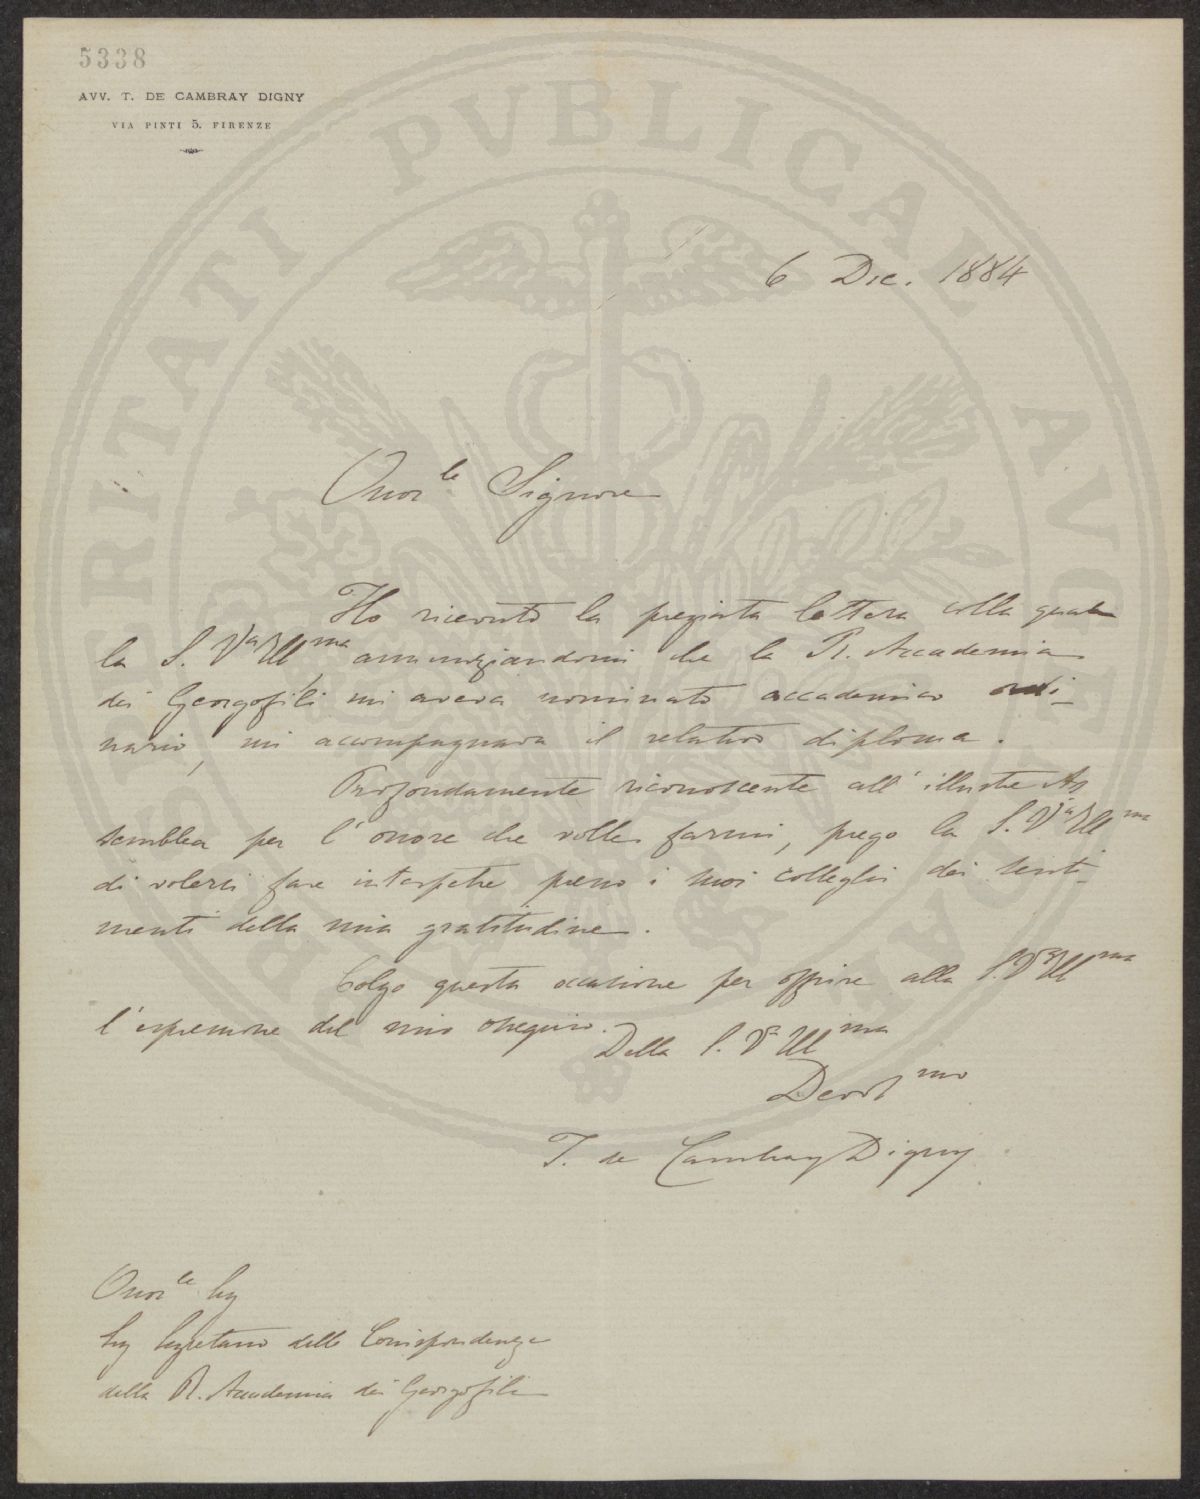 5338
AVV. T. DE CAMBRAY DIGNY
VIA PINTI 5. FIRENZE
PROSPERITATI PVBLICAE AVGENDAE
6 Dic. 1884
Onor.le Signore
Ho ricevuto la pregiata lettera colla quale
la S. V.a Ill.ma annunziandomi che la R. Accademia
dei Georgofili mi aveva nominato accademico ordi-
nario, mi accompagnava il relativo diploma.
Profondamente riconoscente all'illustre As
semblea per l'onore che volle farmi, prego la S. V.a Ill.ma
di volersi fare interpetre presso i suoi colleghi dei senti-
menti della mia gratitudine.
Colgo questa occasione per offrire alla S. V.a Ill.ma
l'espressione del mio ossequio.
Della S. V.a Ill.ma
Devot.mo
T. de Cambray Digny
Onor.le Sig
Sig Segretario delle Corrispondenze
della R. Accademia dei Georgofili